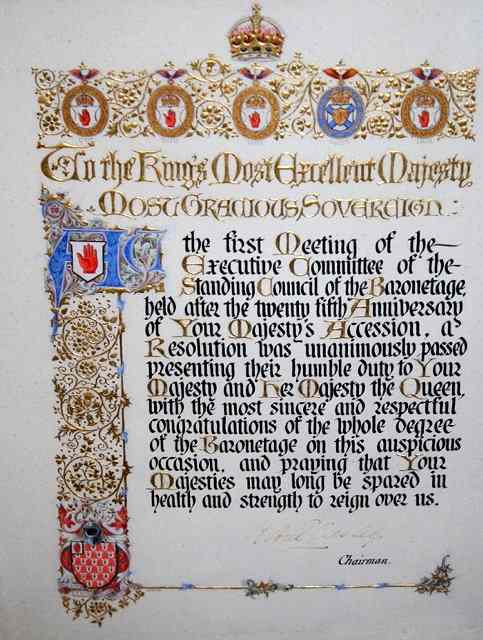 To the King's Most Excellent Majesty
Most Gracious Sovereign:
At the first Meeting of the
Executive Committee of the
Standing Council of the Baronetage,
held after the twenty fifth Anniversary
of Your Majesty's Accession, a
Resolution was unanimously passed
presenting their humble duty to Your
Majesty and Her Majesty the Queen,
with the most sincere and respectful
congratulations of the whole degree
of the Baronetage on this auspicious
occasion, and praying that Your
Majesties may long be spared in
health and strength to reign over us.
Chairman.